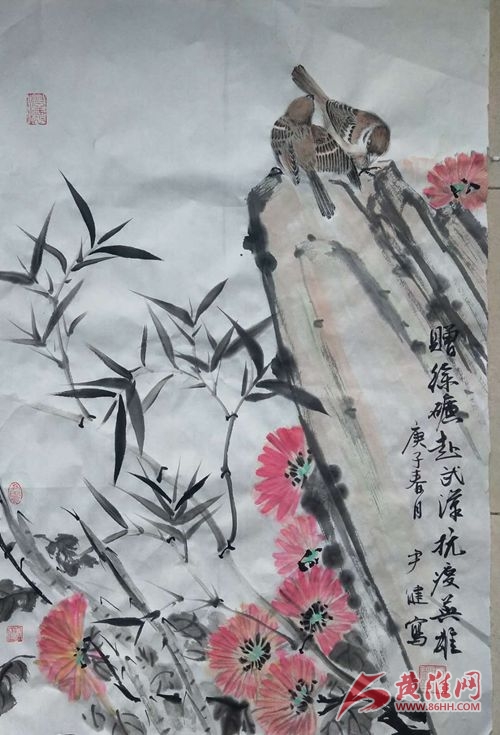 贈徐礦赴武漢抗疫英雄
庚子春月 尹健寫
黄淮网
www.86HH.com